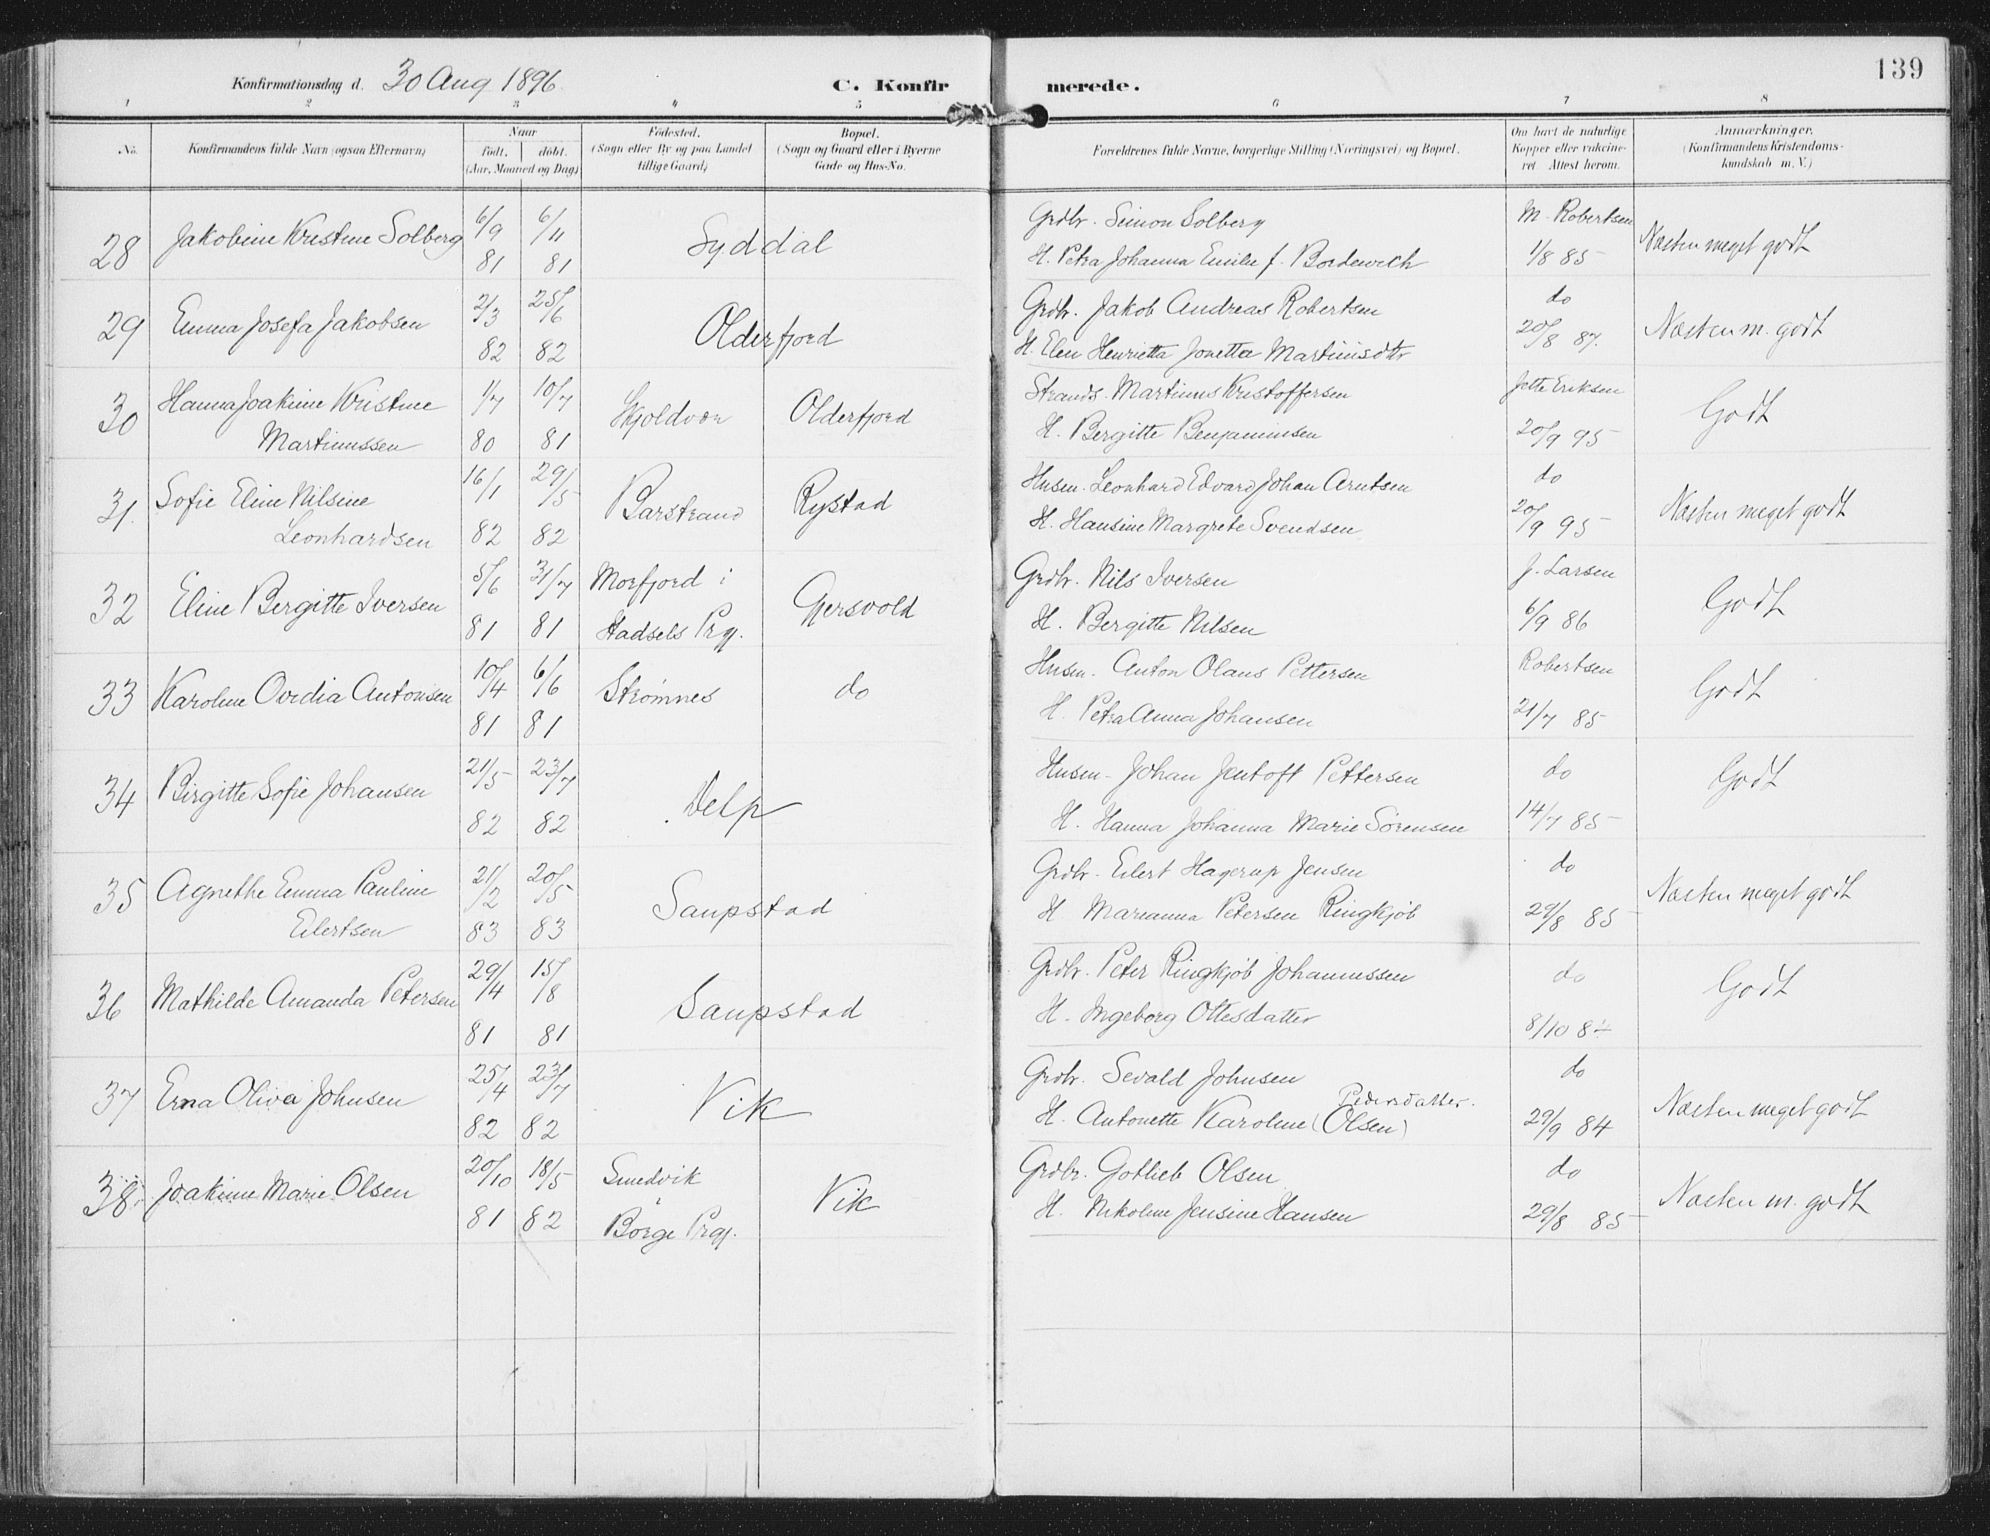 139
Konfirmationsdag d. 30 Aug 1896. C. Konfirmerede.
1 2 3 4 5 6 7 8
No. Konfirmandens fulde Navn (ogsaa Efternavn) Naar födt. döbt. (Aar, Maaned og Dag) Födested. (Sogn eller By og paa Landet tillige Gaard) Bopæl. (Sogn og Gaard eller i Byerne Gade og Hus-No. Forældrenes fulde Navne, borgerlige Stilling (Næringsvei) og Bopæl. Om havt de naturlige Kopper eller vakcineret. Attest herom. Anmærkninger. (Konfirmandens Kristendomskundskab m. V.)
28 Jakobine Kristine Solberg 6/9 81 6/11 81 Syddal Grdbr. Simon Solberg M. Robertsen Næsten meget godt
H. Petra Johanna Emilie f. Bordewich 1/8 85
29 Emma Josefa Jakobsen 2/3 82 25/6 82 Olderfjord Grdbr. Jakob Andreas Robertsen do Næsten m. godt
H. Elen Henrietta Jonetta Martinisdtr 20/8 87.
30 Hanna Joakime Kristine 1/7 80 10/7 81 Skjoldvær Olderfjord Strands. Martinus Kristoffersen Jette Eriksen Godt
Martinussen H. Bergitte Benjaminsen 20/9 95
31. Sofie Eline Nilsine 16/1 82 29/5 82 Barstrand Rystad Husm. Leonhard Edvard Johan Arntsen do Næsten meget godt
Leonhardsen H. Hansine Margrete Svendsen 20/9 95
32 Eline Bergitte Iversen 5/6 81 31/7 81 Morfjord i Gjersvold Grdbr. Nils Iversen J. Larsen Godt
Hadsels Prgj. H. Bergitte Nilsen 6/9 86
33 Karoline Ovidia Antonsen 10/4 81 6/6 81 Strømnes do Husm. Anton Olaus Pettersen Robertsen Godt
H. Petra Anna Johansen 21/7 85
34 Birgitte Sofie Johansen 21/5 82 23/7 82 Delp Husm. Johan Jentoft Pettersen do Godt
H. Hanna Johanna Marie Sörensen 14/7 85
35 Agnethe Emma Pauline 21/2 83 20/5 83 Saupstad Grdbr. Eilert Hagerup Jensen do Næsten meget godt
Eilertsen H. Marianna Petersen Ringkjöb 29/8 85
36 Mathilde Amanda Petersen 29/4 81 15/8 81 Saupstad Grdbr. Peter Ringkjöb Johannussen do Godt
H. Ingeborg Ottesdatter 8/10 84
37 Erna Oliva Johnsen 25/4 82 23/7 82 Vik Grdbr. Sevald Johnsen do Næsten meget godt
Pedersdatter.
H. Antonette Karoline (Olsen) 29/9 84
38. Joakime Marie Olsen 20/10 81 18/5 82 Smedvik i Vik Grdbr. Gotlieb Olsen do Næsten m. godt
Borge Prgj. H. Nikoline Jensine Hansen 29/8 85